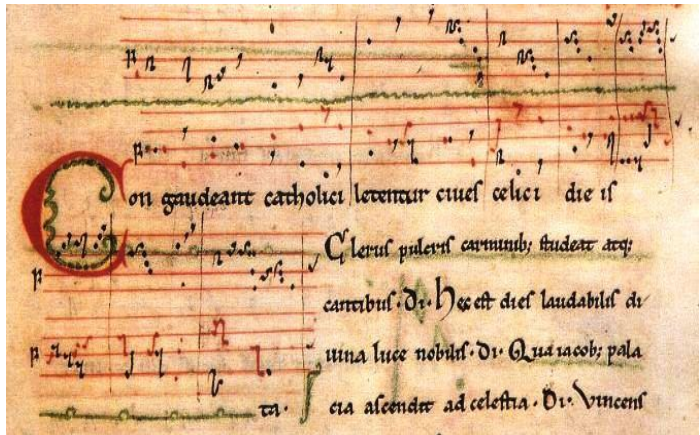 Con gaudeant catholici letentur ciues celici die is
ta.
Clerus pulcris carminib; studeat atq;
cantibus · Di · Hec est dies laudabilis di
uina luce nobilis · Di · Qua iacob; pala
cia ascendit ad celestia · Di · Vincens